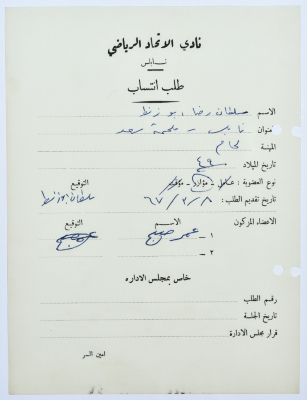 نادي الاتحاد الرياضي
نابلس
طلب انتساب
الاسم سلطان رضا ابو زنط
العنوان نابلس - ملحمة سعد
المهنة لحام
تاريخ الميلاد ٤٩
نوع العضوية : عامل - مؤازر - مؤقت التوقيع
تاريخ تقديم الطلب : ٦٧/٣/٨ سلطان ابو زنط
الاعضاء المزكون الاسم التوقيع
١ - عمر صبح
٢ -
خاص بمجلس الادارة
رقم الطلب
تاريخ الجلسة
قرار مجلس الادارة
امين السر